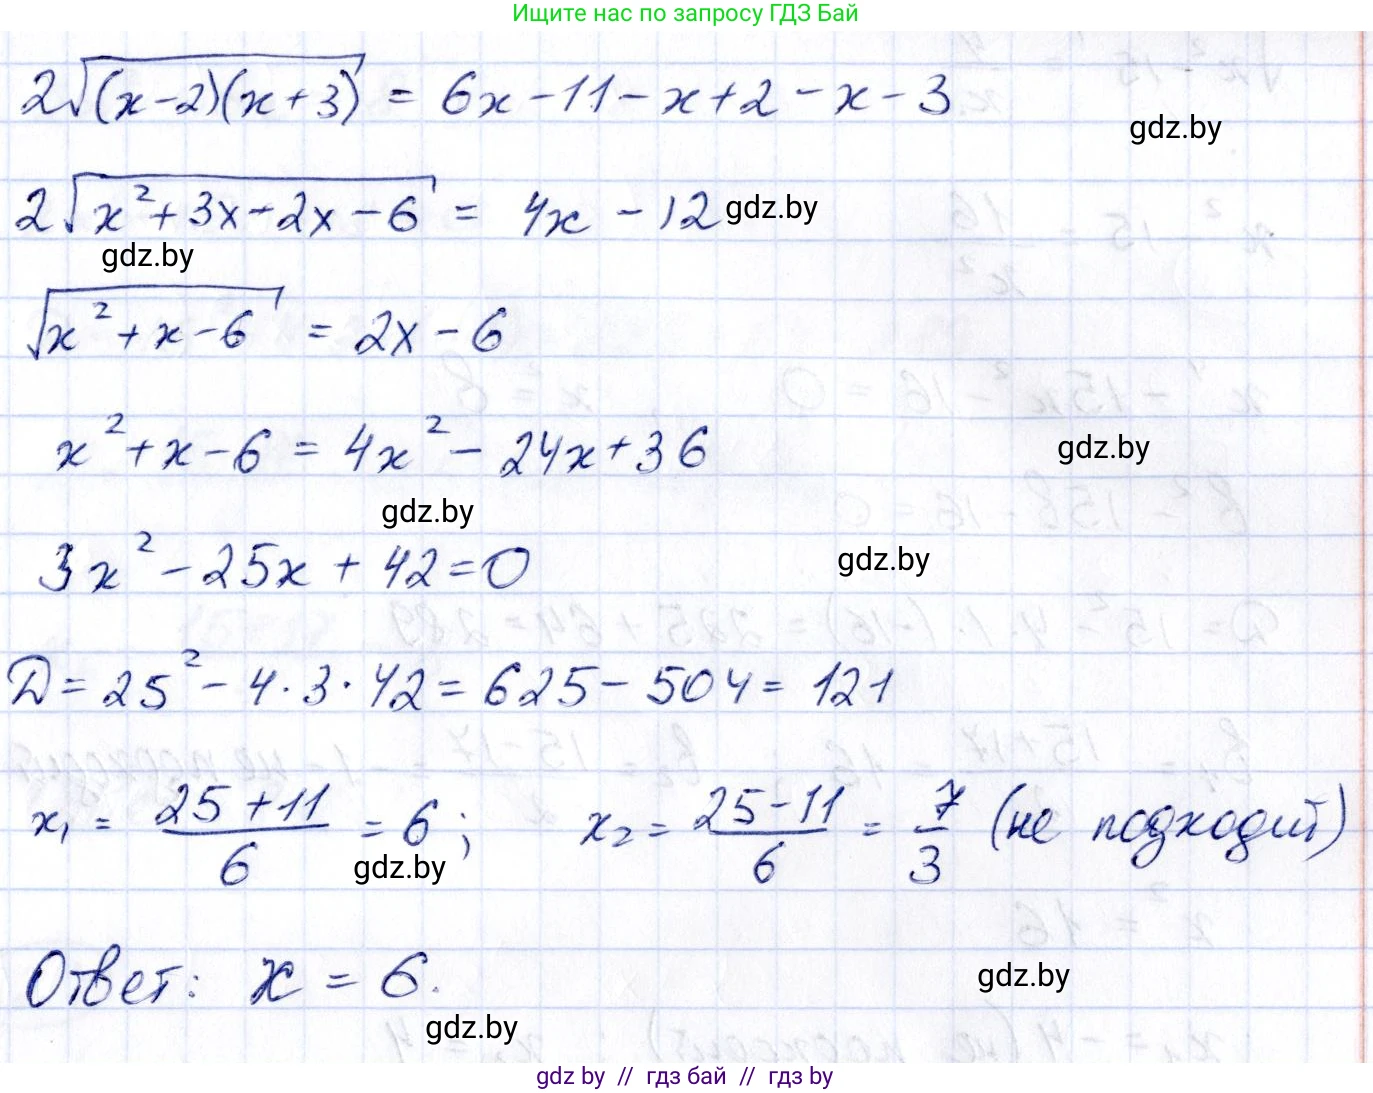 Ищите нас по запросу ГДЗ Бай
2√(x-2)(x+3) = 6x-11-x+2-x-3
gdz.by
2√x²+3x-2x-6 = 4x-12 gdz.by
gdz.by
√x²+x-6 = 2x-6
x²+x-6 = 4x²-24x+36
gdz.by
gdz.by
3x²-25x+42=0
gdz.by
D=25²-4·3·42=625-504=121
x₁ = 25+11/6 = 6; x₂ = 25-11/6 = 7/3 (не подходит)
gdz.by
Ответ: x = 6.
gdz.by
gdz.by
gdz by // гдз бай // гдз by